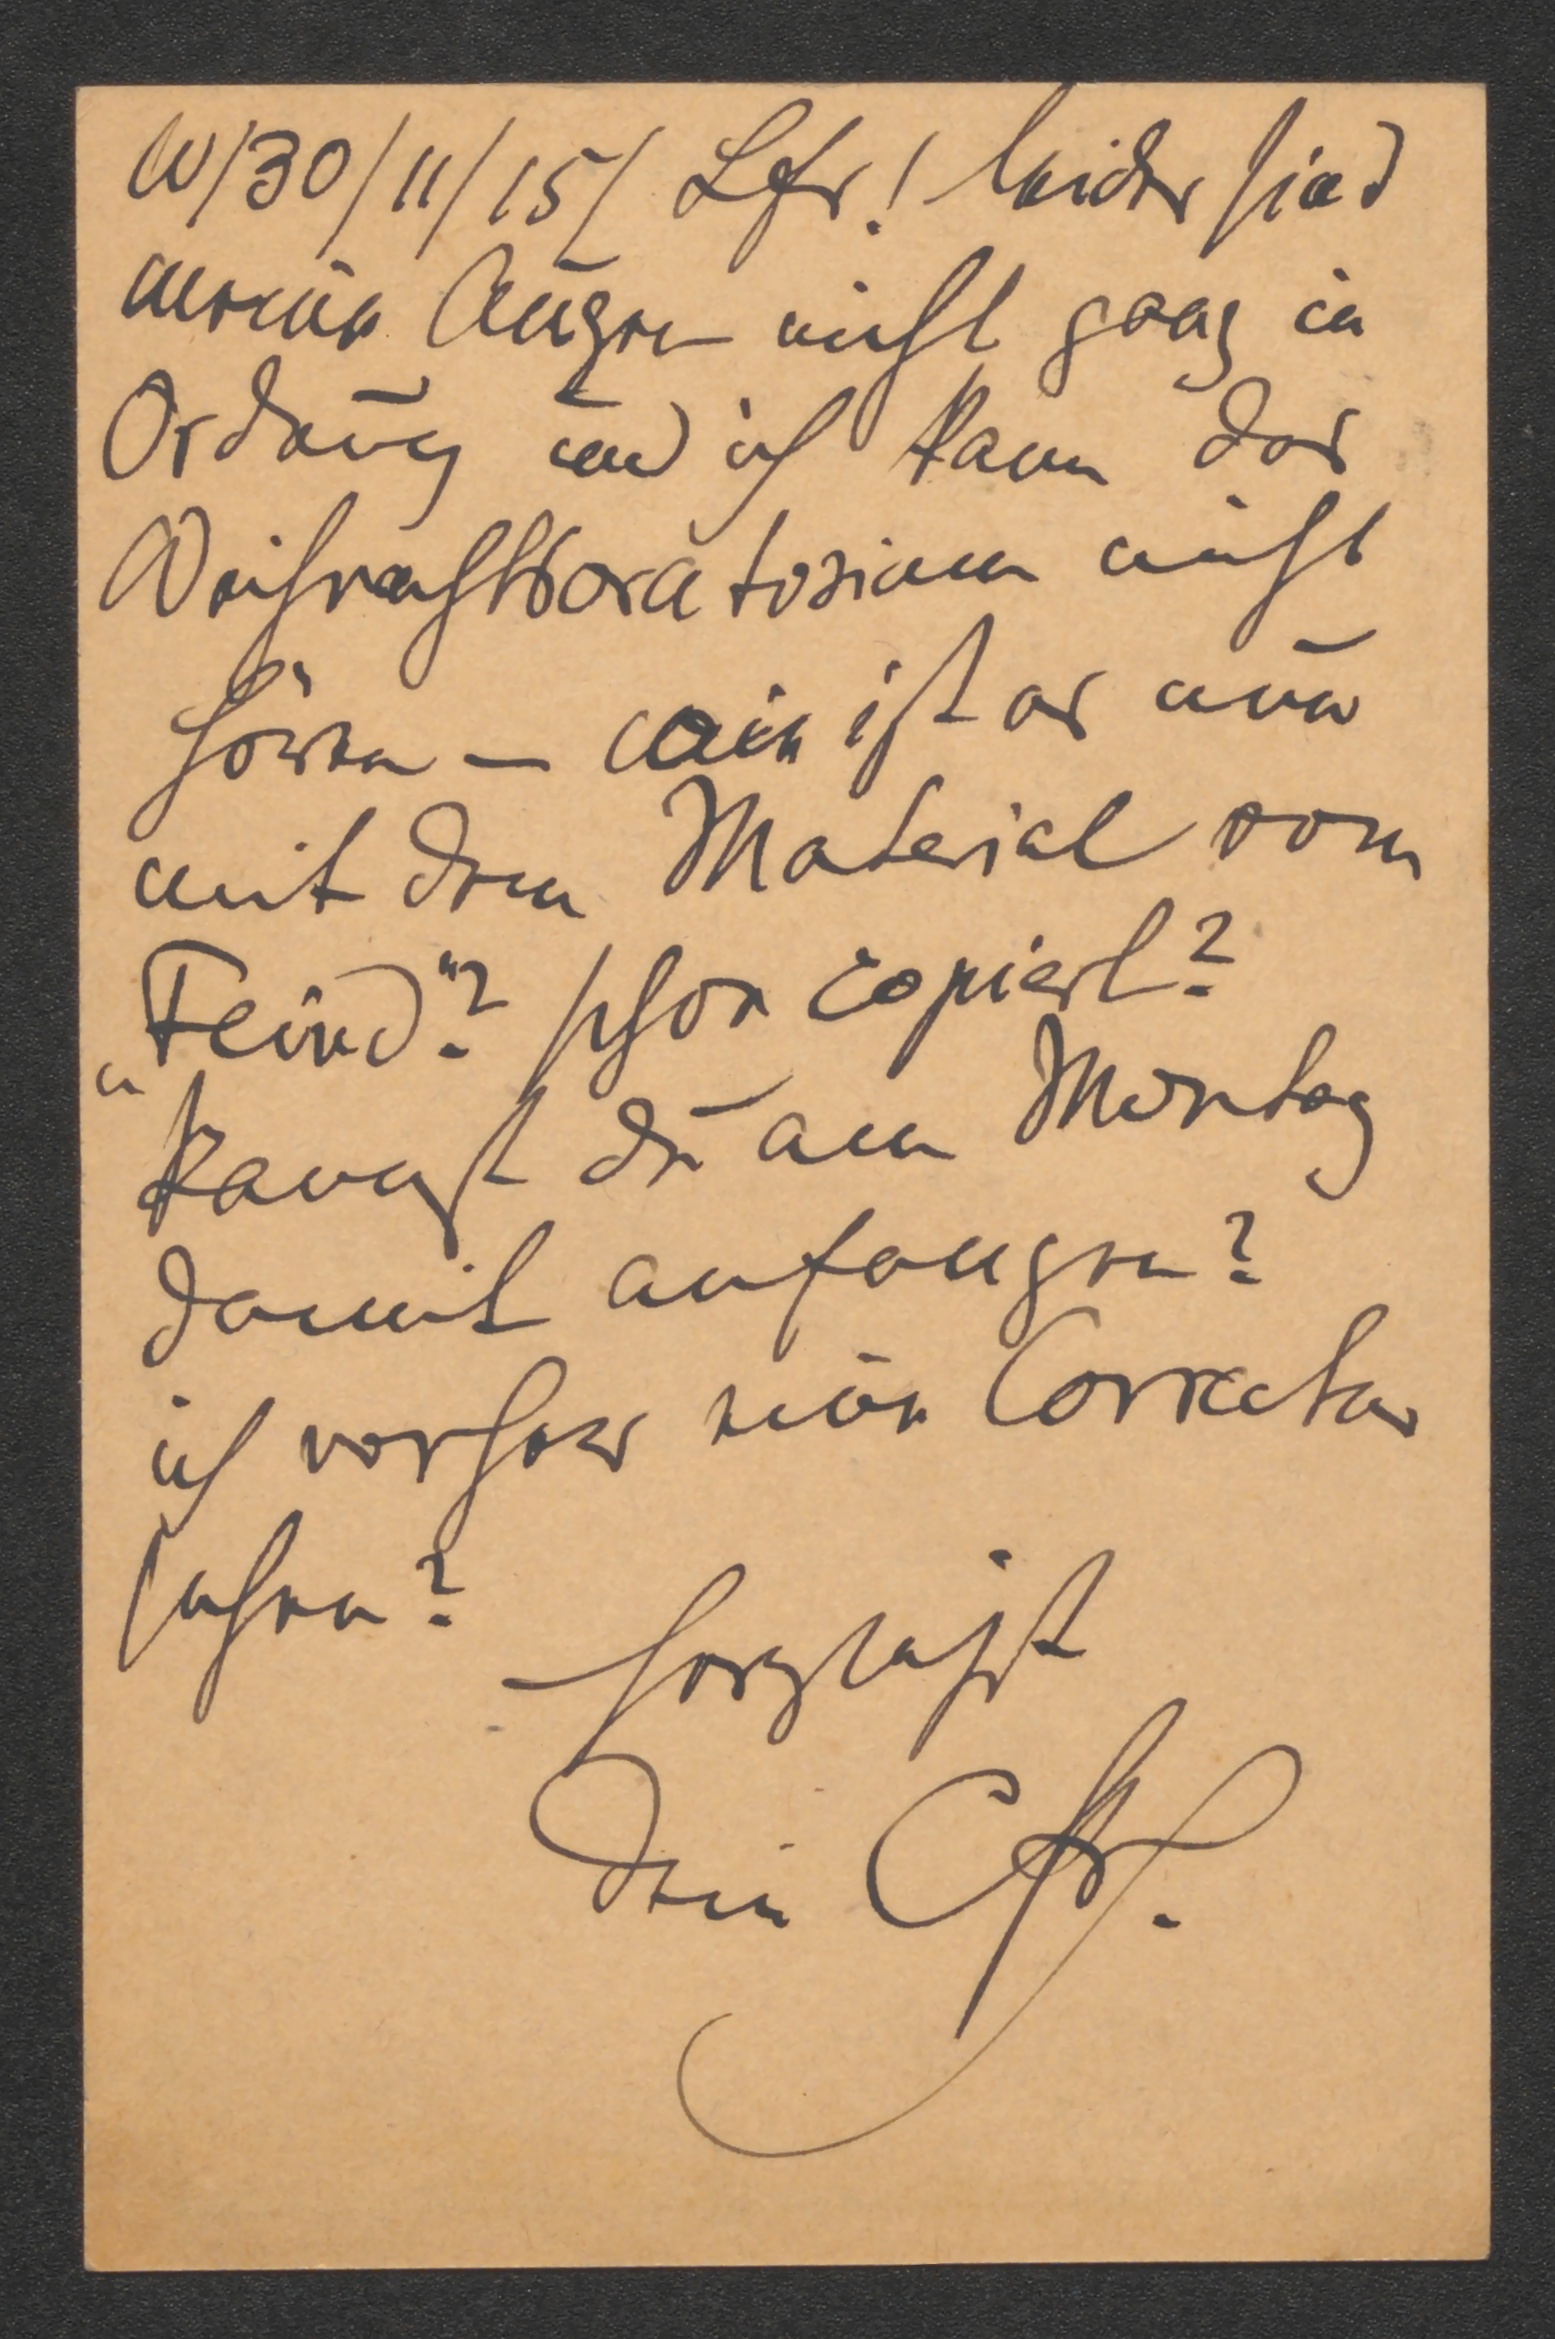 W/30/11/15/ Lfr! leider sind
meine Augen nicht ganz in
Ordnung und ich kann das
Weihnachtsoratorium nicht
hören – wie ist es nun
mit dem Material vom
„Feind"? schon copiert?
kannst du am Montag
damit anfangen?
ich vorher eine Correctur
sehen?
herzlichst
dein